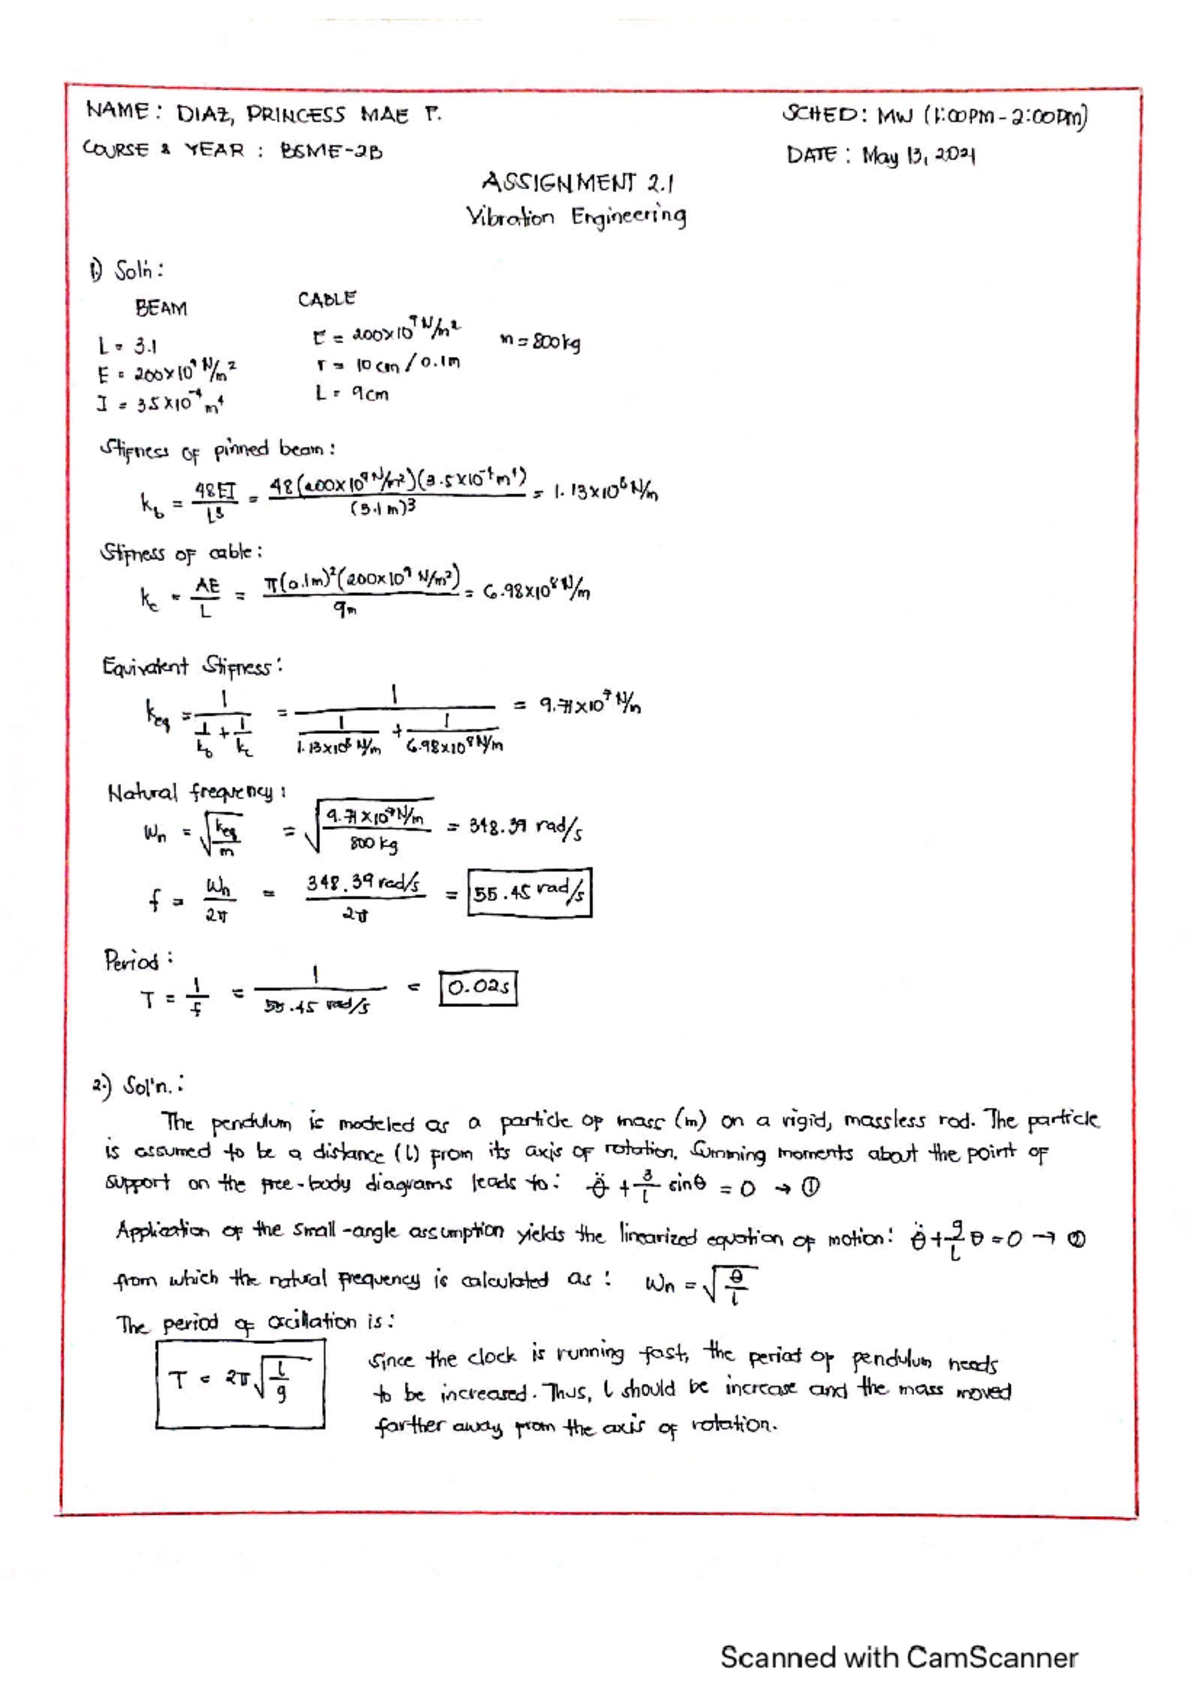 NAME: DIAZ, PRINCESS MAE P. SCHED: MW (1:00PM-2:00PM)
COURSE & YEAR : BSME-2B DATE: May 13, 2021
ASSIGNMENT 2.1
Vibration Engineering
1.) Sol'n:
BEAM CABLE
L = 3.1 E = 200x10⁹ N/m² m = 800kg
E = 200x10⁹ N/m² r = 10cm / 0.1m
I = 3.5x10⁻⁴ m⁴ L = 9cm
Stifness of pinned beam:
k_b = 48EI/L³ = 48(200x10⁹ N/m²)(3.5x10⁻⁴ m⁴)/(3.1m)³ = 1.13x10⁸ N/m
Stifness of cable:
k_c = AE/L = π(0.1m)²(200x10⁹ N/m²)/9m = 6.98x10⁸ N/m
Equivalent Stifness:
k_eq = 1/(1/k_b + 1/k_c) = 1/(1/1.13x10⁸ N/m + 1/6.98x10⁸ N/m) = 9.71x10⁷ N/m
Natural frequency:
Wn = √(k_eq/m) = √(9.71x10⁷ N/m / 800kg) = 348.39 rad/s
f = Wn/2π = 348.39 rad/s / 2π = 55.45 rad/s
Period:
T = 1/f = 1/55.45 rad/s = 0.02s
2.) Sol'n.:
The pendulum is modeled as a particle of mass (m) on a rigid, massless rod. The particle
is assumed to be a distance (l) from its axis of rotation. Summing moments about the point of
support on the free-body diagrams leads to: θ̈ + g/l sinθ = 0 → ①
Application of the small-angle assumption yields the linearized equation of motion: θ̈ + g/l θ = 0 → ②
from which the natural frequency is calculated as: Wn = √(θ/l)
The period of occillation is:
T = 2π√(l/g) Since the clock is running fast, the period of pendulum needs
to be increased. Thus, l should be increase and the mass moved
farther away from the axis of rotation.
Scanned with CamScanner